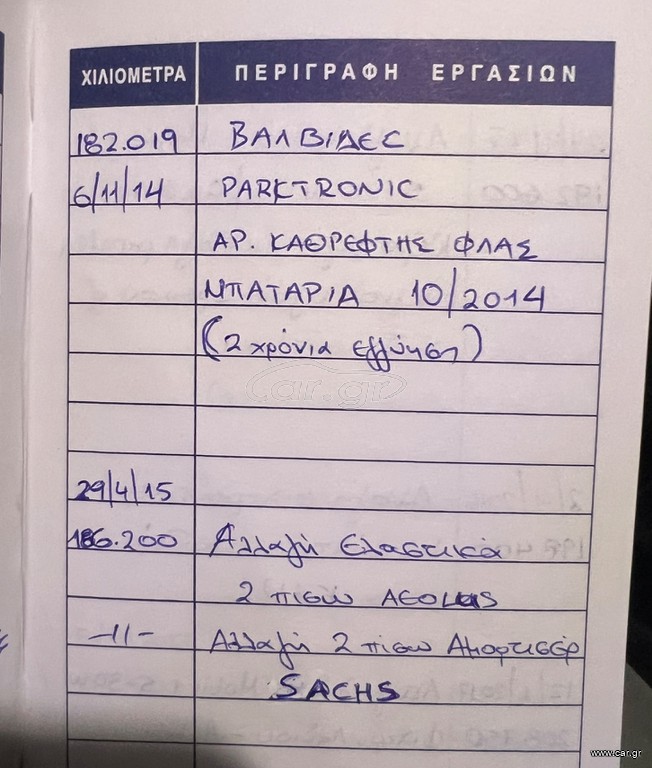 ΧΙΛΙΟΜΕΤΡΑ ΠΕΡΙΓΡΑΦΗ ΕΡΓΑΣΙΩΝ
182.019 ΒΑΛΒΙΔΕC
6/11/14 PARKTRONIC
ΑΡ. ΚΑΘΡΕΦΤΗΣ ΦΛΑΣ
ΜΠΑΤΑΡΙΑ 10/2014
(2 χρόνια εγγύηση)
car.gr
29/4/15
186.200 Αλλαγή Ελαστικά
2 πισω AEOLUS
-11- Αλλαγή 2 πισω Αμορτισέρ
SACHS
www.car.gr